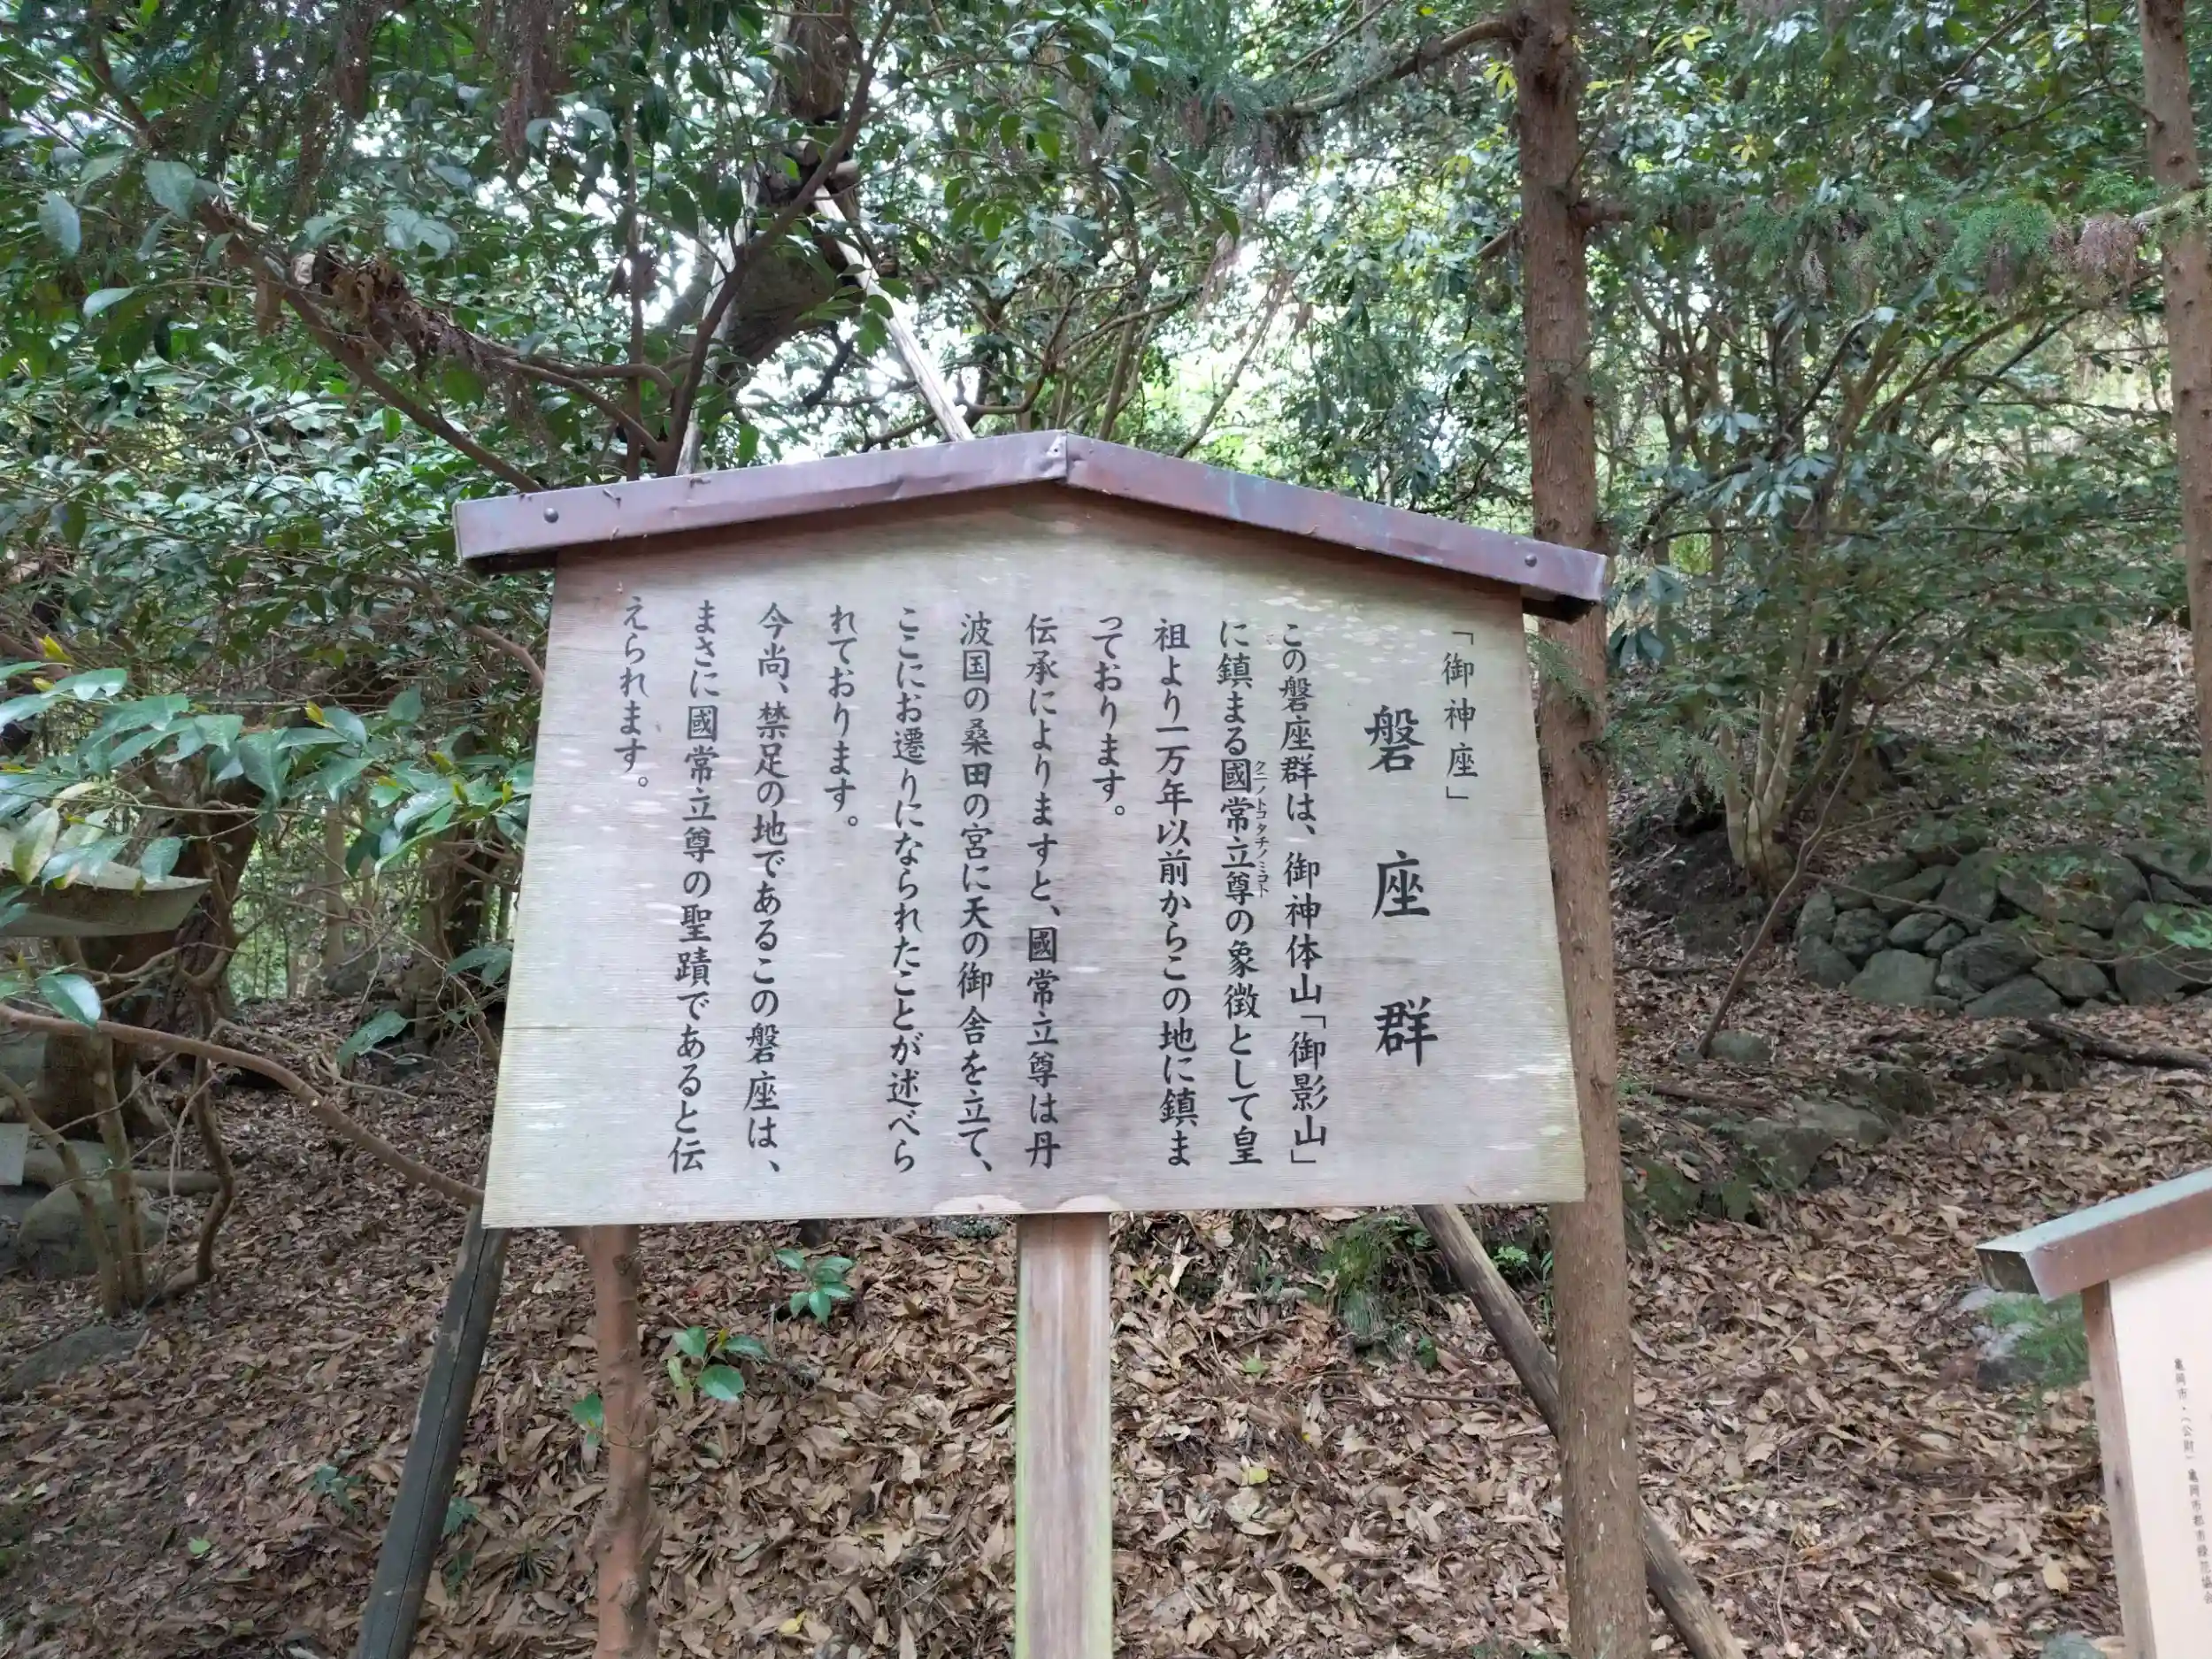 「御神座」
磐座群
この磐座群は、御神体山「御影山」
に鎮まる國常立尊の象徴として皇
クニノトコタチノミコト
祖より一万年以前からこの地に鎮ま
っております。
伝承によりますと、國常立尊は丹
波国の桑田の宮に天の御舎を立て、
ここにお遷りになられたことが述べら
れております。
今尚、禁足の地であるこの磐座は、
まさに國常立尊の聖蹟であると伝
えられます。
亀岡市・(公財)亀岡市都市緑花協会